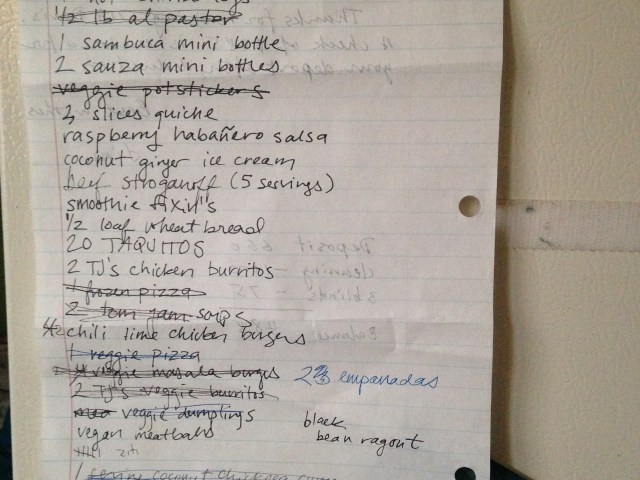 1/2 lb al pastor
1 sambuca mini bottle
2 sauza mini bottles
veggie potstickers
3 slices quiche
raspberry habañero salsa
coconut ginger ice cream
beef stroganoff (5 servings)
smoothie fixin's
1/2 loaf wheat bread
20 TAQUITOS
2 TJ's chicken burritos
1 frozen pizza
2 tom yam soups
chili lime chicken burgers
1 veggie pizza
4 veggie masala burgers
empanadas
2 TJ's veggie burritos
veggie dumplings
black
bean ragout
vegan meatballs
ziti
1 coconut chicken
Deposit
cleaning
3 blinds = 75
Balance